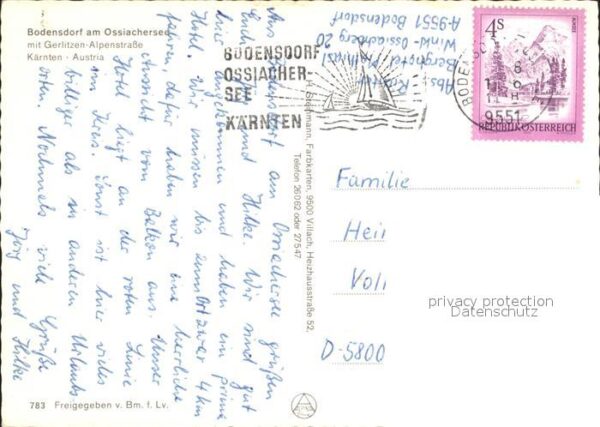 Bodensdorf am Ossiachersee
mit Gerlitzen-Alpenstraße
Kärnten · Austria
Aus Bodensdorf am Ossiachersee grüßen
Euch und Hilke. Wir sind gut
hier angekommen und haben ein prima
Hotel. Wir müssen bis zum Ort zwar 4 km
fahren, dafür haben wir eine herrliche
Aussicht vom Balkon aus. Unser
Hotel liegt an der roten Linie
im Kreis. Sonst ist hier vieles
billiger als in anderen Urlaubs-
orten. Nochmals viele Grüße
Jörg und Hilke
783 Freigegeben v. Bm. f. Lv.
Farbkarten, 9500 Villach, Heizhausstraße 52,
Telefon 26062 oder 27547
BODENSDORF
OSSIACHER-
SEE
KÄRNTEN
Abs.
Berghotel
Winkl-Ossiachberg 20
A-9551 Bodensdorf
BODENSDORF
9551
4S
REPUBLIK ÖSTERREICH
Familie
Hei
Vol
D-5800
privacy protection
Datenschutz